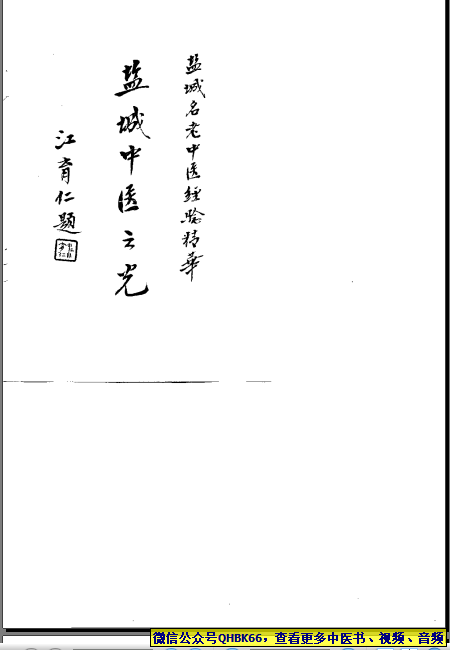 盐城名老中医经验精华
盐城中医之光
江育仁题
微信公众号QHBK66，查看更多中医书、视频、音频